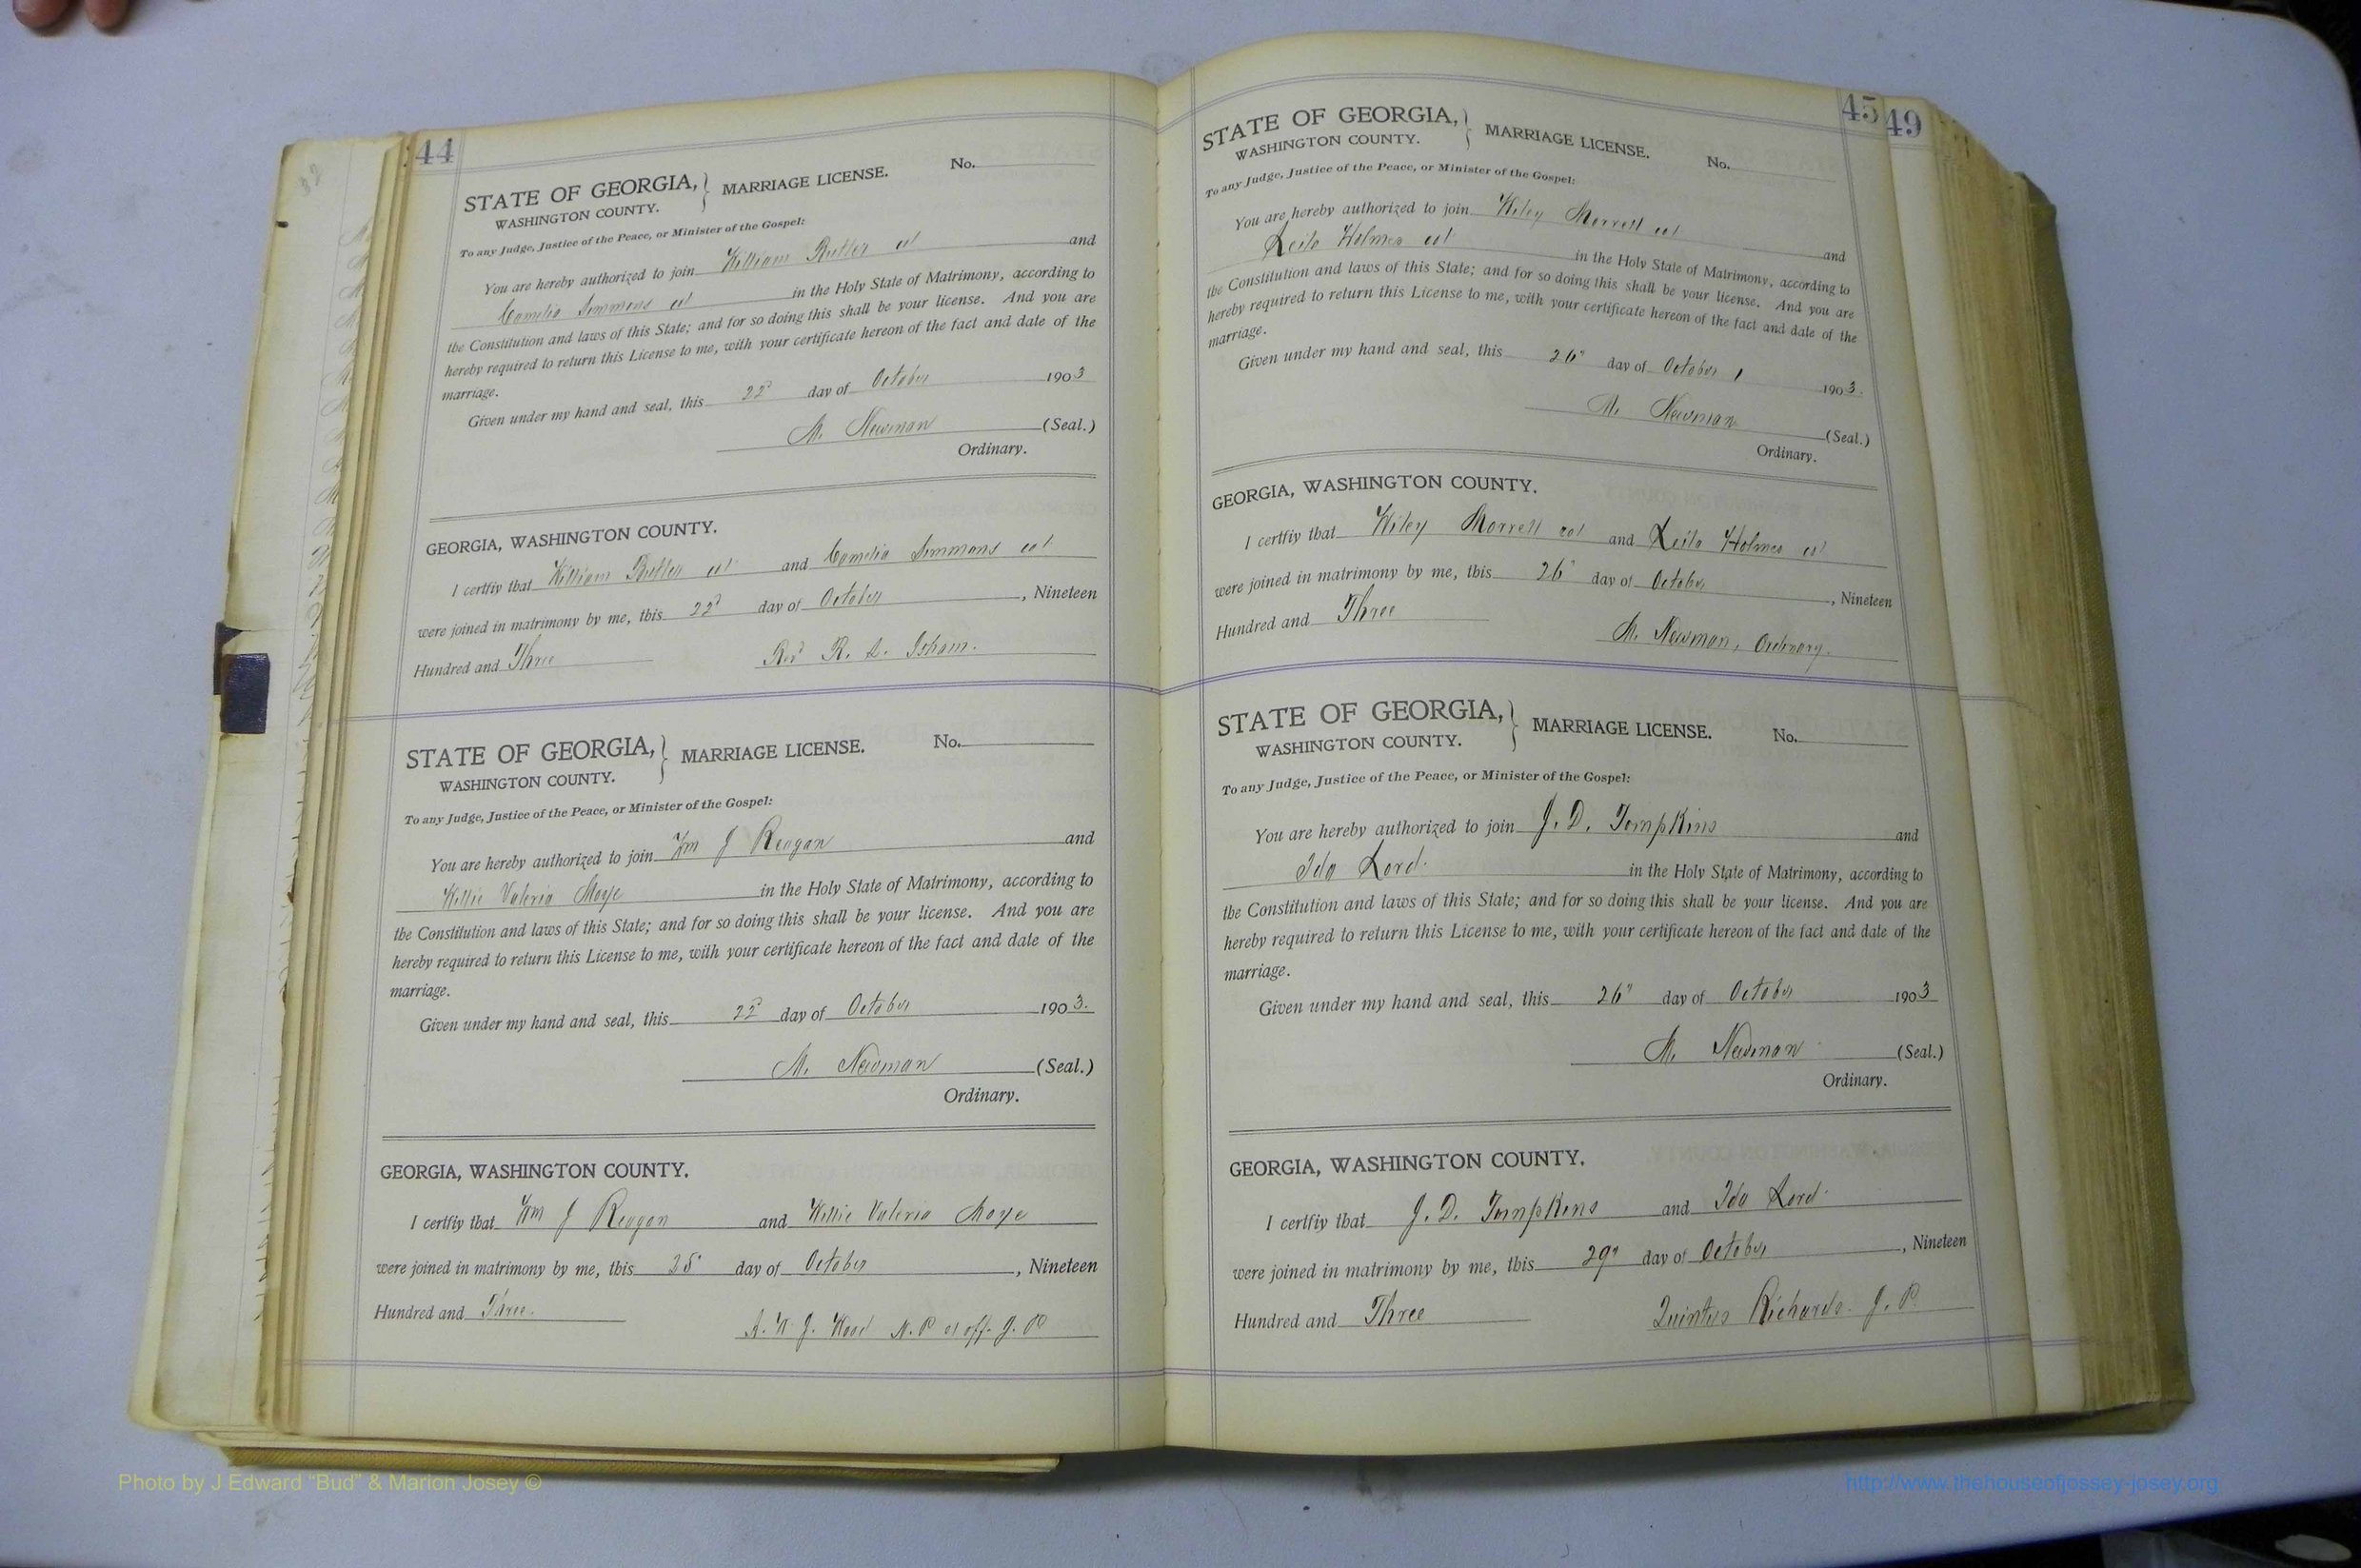 44
STATE OF GEORGIA, } MARRIAGE LICENSE. No.
WASHINGTON COUNTY.
To any Judge, Justice of the Peace, or Minister of the Gospel:
You are hereby authorized to join William Butler col and
Camelia Simmons col in the Holy State of Matrimony, according to
the Constitution and laws of this State; and for so doing this shall be your license. And you are
hereby required to return this License to me, with your certificate hereon of the fact and date of the
marriage.
Given under my hand and seal, this 22d day of October 1903
M. Newman (Seal.)
Ordinary.
GEORGIA, WASHINGTON COUNTY.
I certfiy that William Butler col and Camelia Simmons col
were joined in matrimony by me, this 22d day of October, Nineteen
Hundred and Three Revd R. Isham.
STATE OF GEORGIA, } MARRIAGE LICENSE. No.
WASHINGTON COUNTY.
To any Judge, Justice of the Peace, or Minister of the Gospel:
You are hereby authorized to join Wm J Reagan and
Willie Valeria Moye in the Holy State of Matrimony, according to
the Constitution and laws of this State; and for so doing this shall be your license. And you are
hereby required to return this License to me, with your certificate hereon of the fact and date of the
marriage.
Given under my hand and seal, this 22d day of October 1903.
M. Newman (Seal.)
Ordinary.
GEORGIA, WASHINGTON COUNTY.
I certfiy that Wm J Reagan and Willie Valeria Moye
were joined in matrimony by me, this 25" day of October, Nineteen
Hundred and Three. J. Wood N. P. J. P
45
49
STATE OF GEORGIA, } MARRIAGE LICENSE. No.
WASHINGTON COUNTY.
To any Judge, Justice of the Peace, or Minister of the Gospel:
You are hereby authorized to join Wiley Morrell col and
Leila Holmes col in the Holy State of Matrimony, according to
the Constitution and laws of this State; and for so doing this shall be your license. And you are
hereby required to return this License to me, with your certificate hereon of the fact and date of the
marriage.
Given under my hand and seal, this 26" day of October 1903.
M. Newman (Seal.)
Ordinary.
GEORGIA, WASHINGTON COUNTY.
I certfiy that Wiley Morrell col and Leila Holmes col
were joined in matrimony by me, this 26" day of October, Nineteen
Hundred and Three M. Newman, Ordinary.
STATE OF GEORGIA, } MARRIAGE LICENSE. No.
WASHINGTON COUNTY.
To any Judge, Justice of the Peace, or Minister of the Gospel:
You are hereby authorized to join J. D. Tompkins and
Ida Lord. in the Holy State of Matrimony, according to
the Constitution and laws of this State; and for so doing this shall be your license. And you are
hereby required to return this License to me, with your certificate hereon of the fact and date of the
marriage.
Given under my hand and seal, this 26" day of October 1903
M. Newman (Seal.)
Ordinary.
GEORGIA, WASHINGTON COUNTY.
I certfiy that J. D. Tompkins and Ida Lord.
were joined in matrimony by me, this 29" day of October, Nineteen
Hundred and Three Quintus Richards. J. P.
Photo by J Edward "Bud" & Marion Josey ©
http://www.thehouseofjossey-josey.org